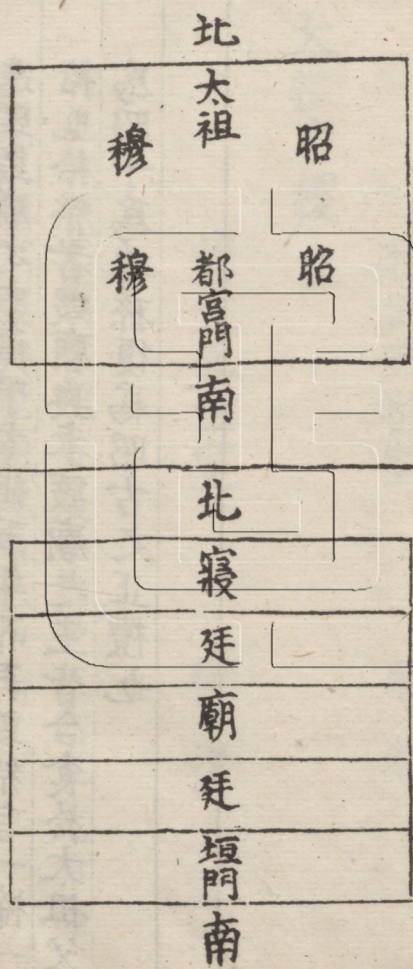 北
太祖
昭
穆
昭
穆
都宮門
南
北
寢
廷
廟
廷
垣門
南